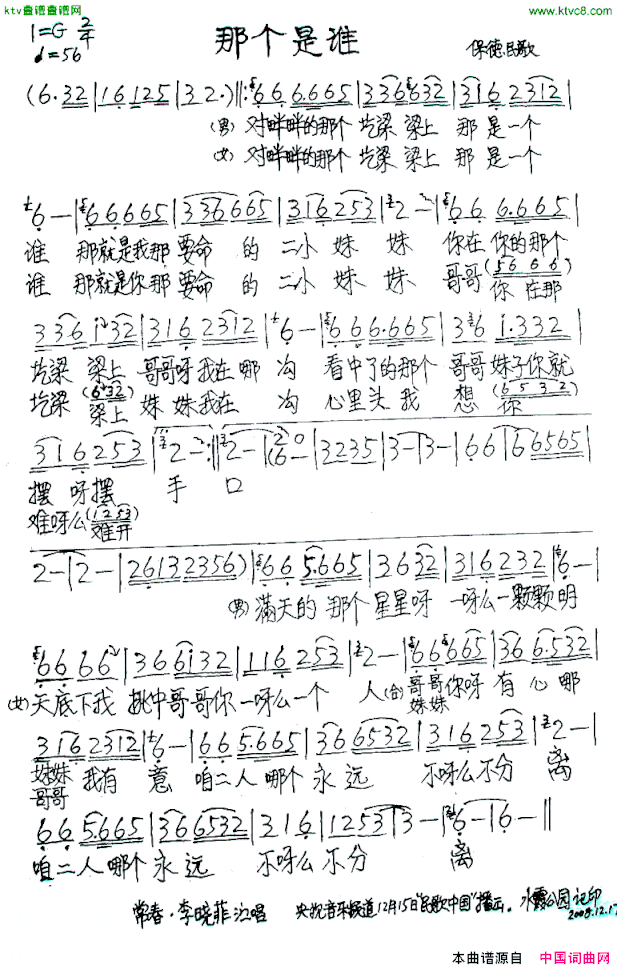 ktv查谱查谱网
www.ktvc8.com
1=G 2/4
♩=56
那个是谁
保德民歌
(6·32|16125|32·)‖:66 6.665|336632|316 2312|
(男) 对畔畔的那个 圪梁 梁上 那 是一个
(女) 对畔畔的那个 圪梁 梁上 那 是一个
6-|66665|336665|316253|2-|66 6.665|
谁 那就是我那 要命 的 二小 妹 妹 你在 你的那个
谁 那就是你那 要命 的 二小 妹 妹 哥哥 (56 66) 你 在那
336 i32|316 2312|6-|66 6.665|336 i.332|
圪梁 梁上 哥哥呀我在 哪 沟 看中了的那个 哥哥 妹子你就
圪梁 (6 32) 梁上 妹 妹我在 沟 心里头我 想 (6 5 3 2) 你
316 253|2-:‖2-|(6-|3235|3-|3-|66|66565|
摆 呀摆 手 口
难呀么 (1253) 难开
2-|2-|26132356)|66 5.665|3632|316 232|6-|
(男) 满天的 那个 星星呀 一呀么一颗颗明
66 66|366i32|116 253|2-|66665|36 6.532|
(女) 天底下我 挑中哥哥你 一呀么一个 人 (合) 哥哥你呀 有 心 哪
妹妹
316 2312|6-|66 5.665|366532|316 253|2-|
妹妹 我有 意 咱二人 哪个 永 远 不呀么不分 离
哥哥
66 5.665|366532|316|1253|3-|6-|6-‖
咱二人 哪个 永 远 不呀么 不分 离
常春·李晓菲 演唱 央视音乐频道12月15日"民歌中国"播出。 水霞公园 记印
2008.12.17
本曲谱源自 中国词曲网